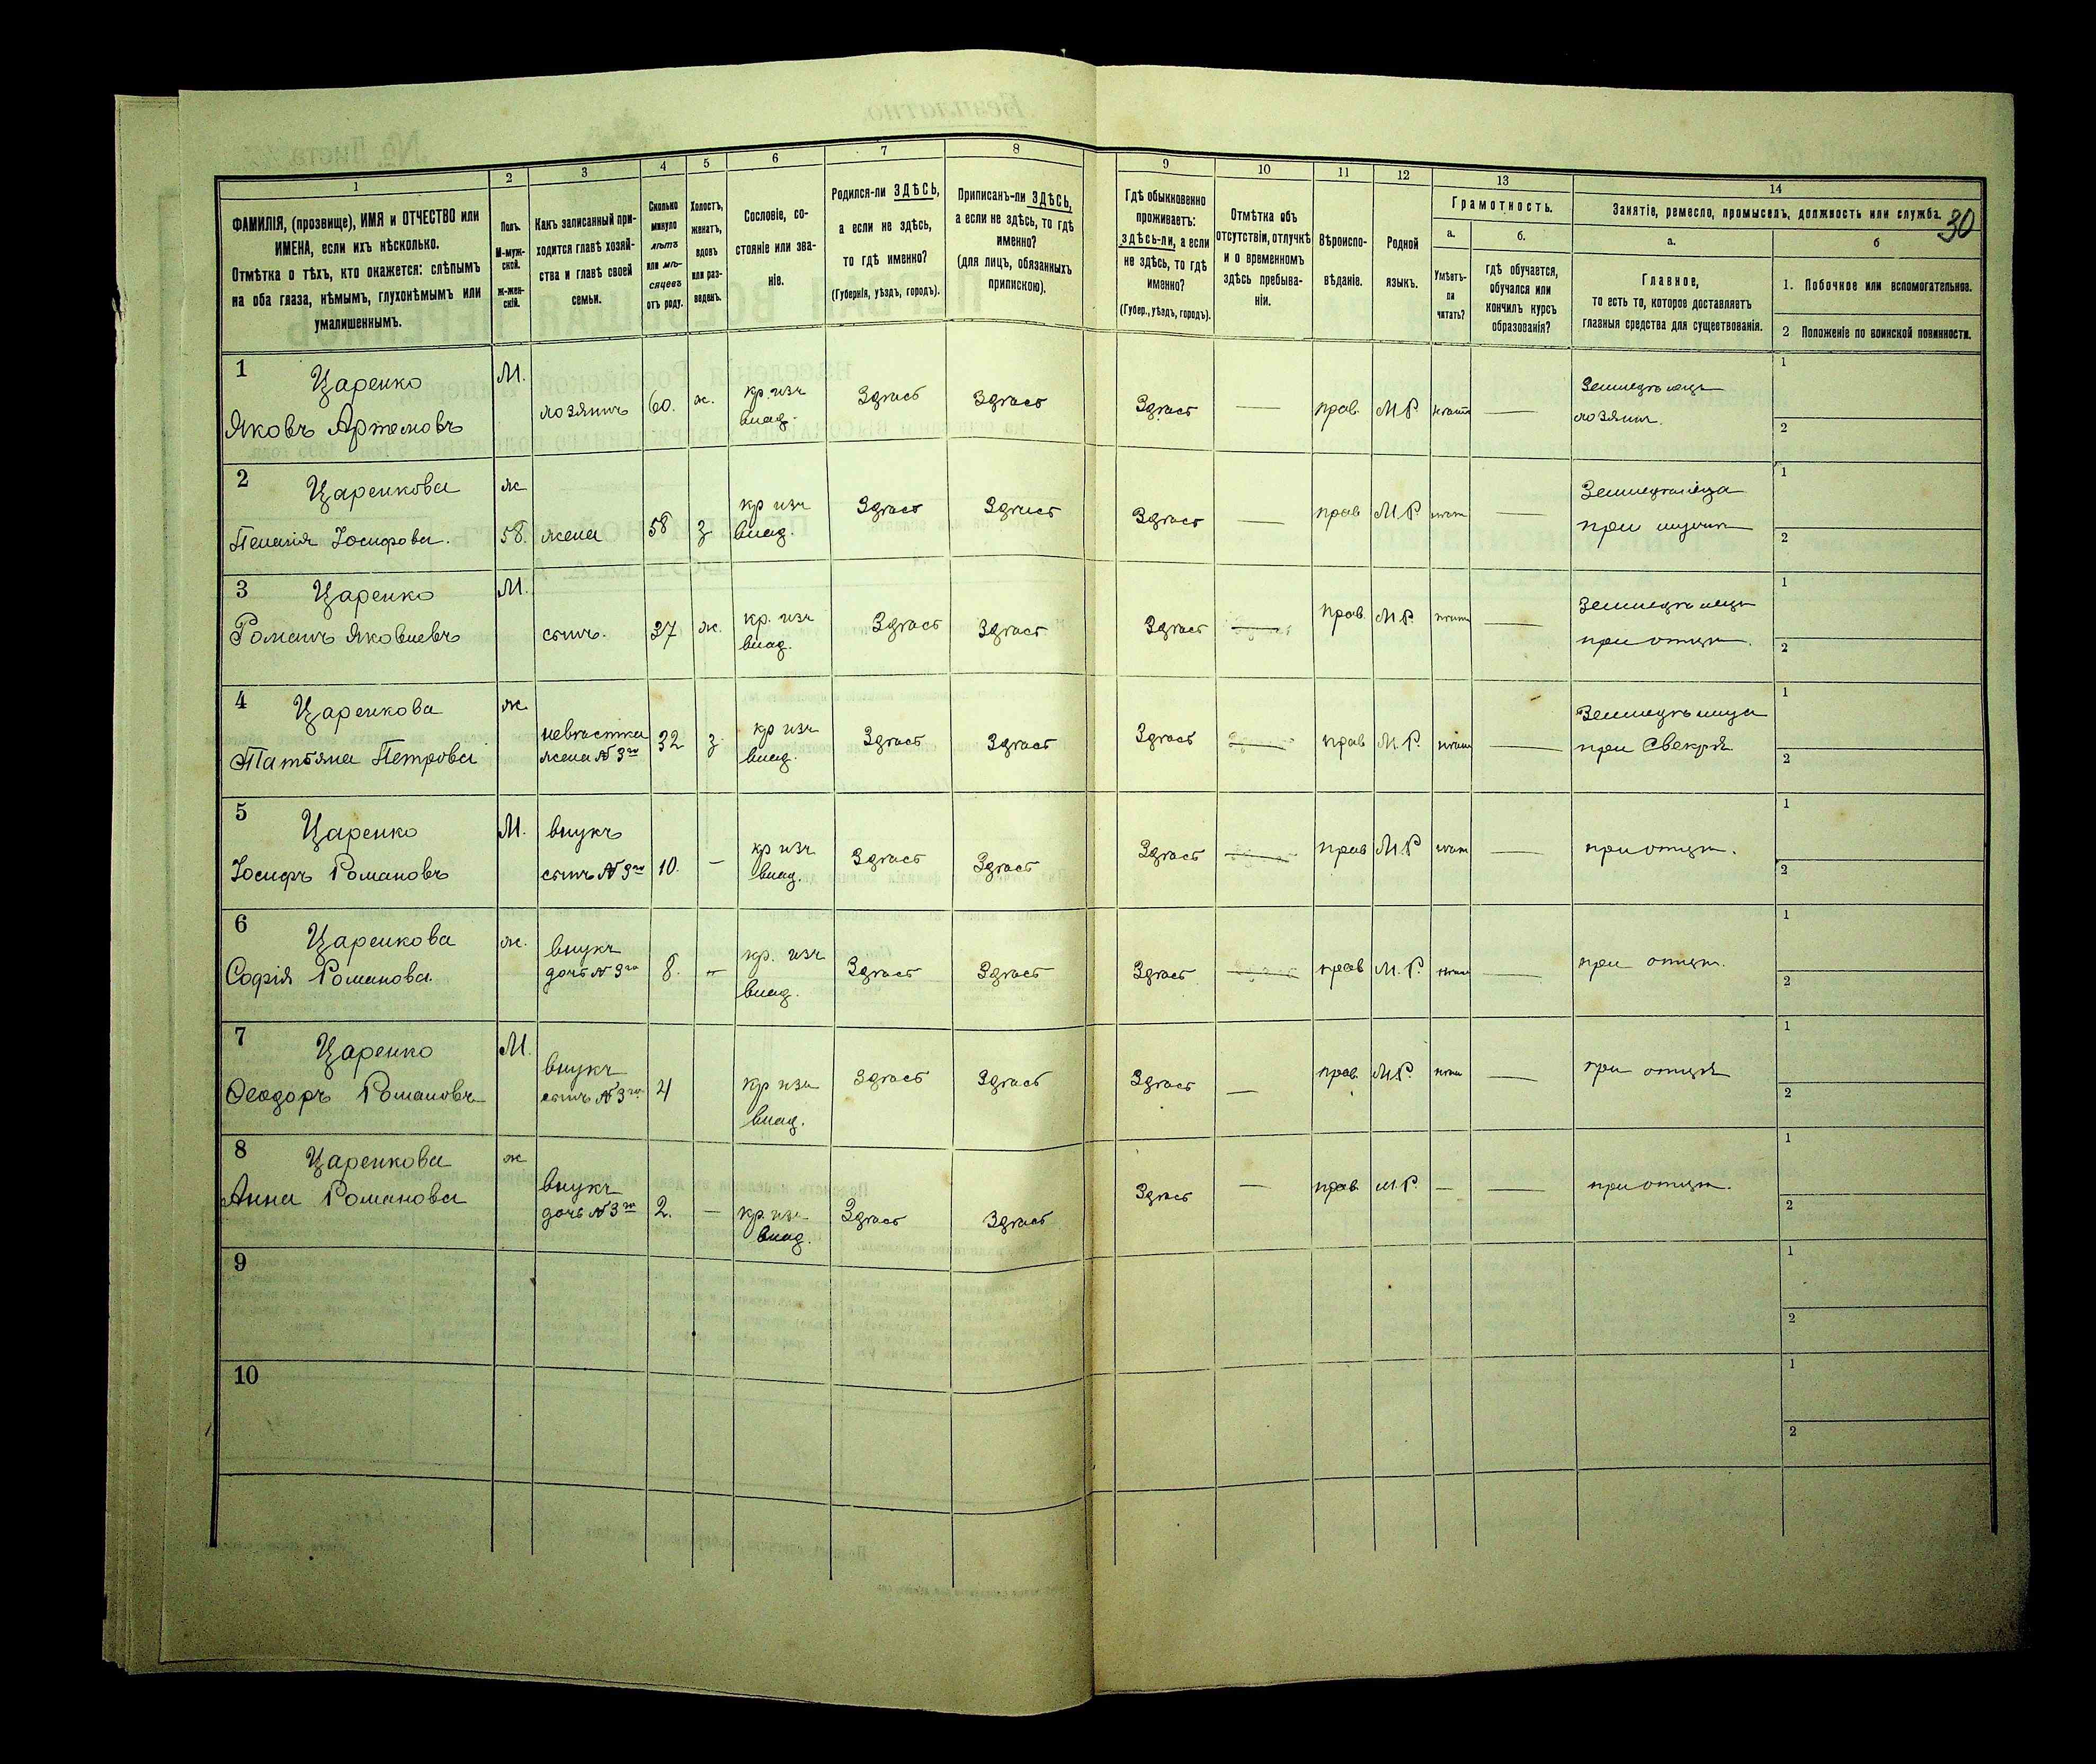 30
1
2
3
4
5
6
7
8
9
10
11
12
13
14
ФАМИЛІЯ, (прозвище), ИМЯ и ОТЧЕСТВО или
ИМЕНА, если ихъ нѣсколько.
Отмѣтка о тѣхъ, кто окажется: слѣпымъ
на оба глаза, нѣмымъ, глухонѣмымъ или
умалишеннымъ.
Полъ.
М-муж-
ской.
Ж-жен-
скій.
Какъ записанный при-
ходится главѣ хозяй-
ства и главѣ своей
семьи.
Сколько
минуло
лѣтъ
или мѣ-
сяцевъ
отъ роду.
Холостъ,
женатъ,
вдовъ
или раз-
веденъ.
Сословіе, со-
стояніе или зва-
ніе.
Родился-ли ЗДѢСЬ,
а если не здѣсь,
то гдѣ именно?
(Губернія, уѣздъ, городъ).
Приписанъ-ли ЗДѢСЬ,
а если не здѣсь, то гдѣ
именно?
(для лицъ, обязанныхъ
припискою).
Гдѣ обыкновенно
проживаетъ:
здѣсь-ли, а если
не здѣсь, то гдѣ
именно?
(Губер., уѣздъ, городъ).
Отмѣтка объ
отсутствіи, отлучкѣ
и о временномъ
здѣсь пребыва-
ніи.
Вѣроиспо-
вѣданіе.
Родной
языкъ.
Грамотность.
а.
б.
Умѣетъ-
ли
читать?
гдѣ обучается,
обучался или
кончилъ курсъ
образованія?
Занятіе, ремесло, промыселъ, должность или служба.
а.
б
Главное,
то есть то, которое доставляетъ
главныя средства для существованія.
1. Побочное или вспомогательное.
2 Положеніе по воинской повинности.
1 Царенко М.
Яковъ Артемовъ хозяинъ 60. ж. кр. изъ влад. Здѣсь Здѣсь Здѣсь — прав. М.Р. нѣтъ — Земледѣлецъ хозяинъ. 1 2
2 Царенкова ж
Пелагія Іосифова. 58. жена 58 з кр изъ влад. Здѣсь Здѣсь Здѣсь — прав М.Р. нѣтъ — при мужѣ 1 2
3 Царенко М.
Романъ Яковлевъ сынъ. 37 ж. кр. изъ влад. Здѣсь Здѣсь Здѣсь — прав. М.Р. нѣтъ — Земледѣлецъ при отцѣ. 1 2
4 Царенкова ж.
Татьяна Петрова невѣстка жена № 3го 32 з. кр изъ влад. Здѣсь Здѣсь Здѣсь — прав М.Р. нѣтъ — при свекрѣ 1 2
5 Царенко М. внукъ
Іосифъ Романовъ сынъ № 3го 10. — кр изъ влад. Здѣсь Здѣсь Здѣсь — прав М.Р нѣтъ — при отцѣ. 1 2
6 Царенкова ж. внукъ
Софія Романова. дочь № 3го 8. — кр. изъ влад. Здѣсь Здѣсь Здѣсь — прав М.Р. нѣтъ — при отцѣ. 1 2
7 Царенко М. внукъ
Ѳеодоръ Романовъ сынъ № 3го 4 кр изъ влад. Здѣсь Здѣсь Здѣсь — прав. М.Р. нѣтъ — при отцѣ 1 2
8 Царенкова ж внукъ
Анна Романова дочь № 3го 2. — кр. изъ влад. Здѣсь Здѣсь Здѣсь — прав. М.Р. — — при отцѣ. 1 2
9 1 2
10 1 2